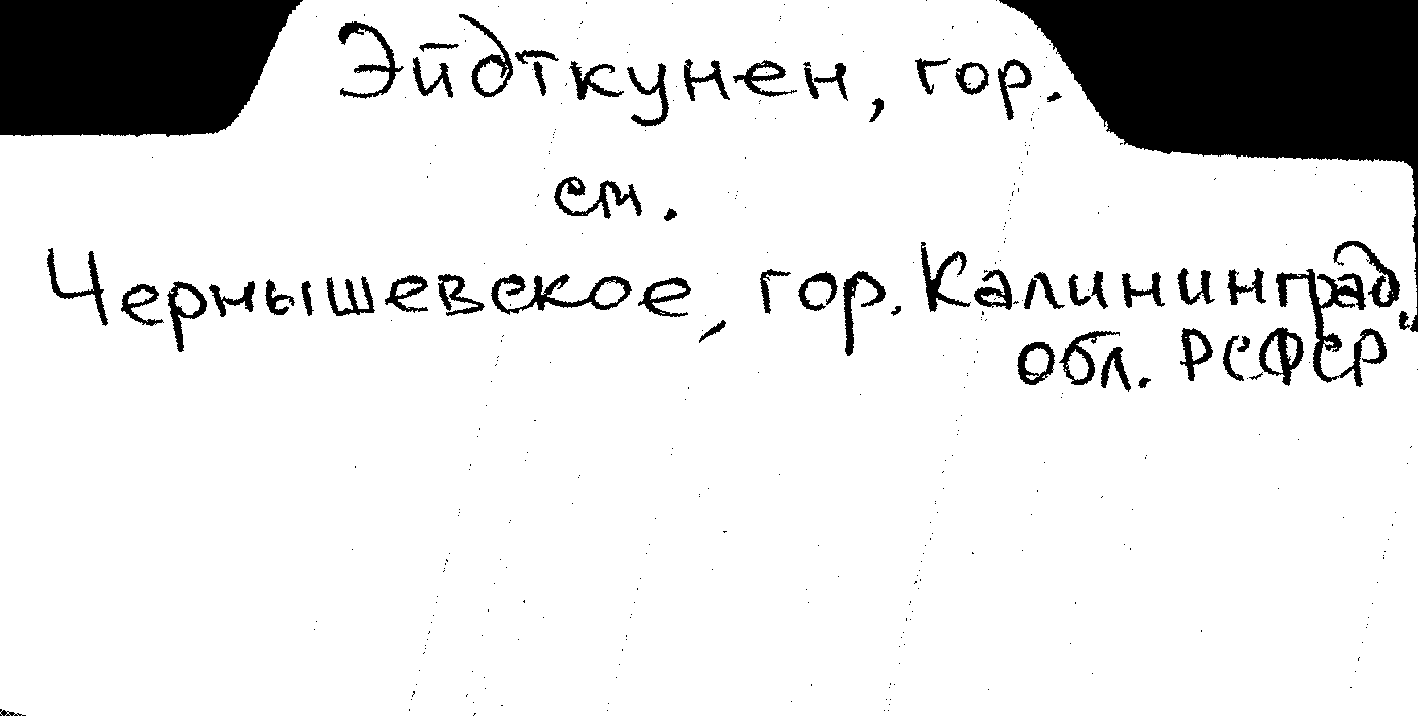 Эйдткунен, гор.
см.
Чернышевское, гор. Калининград.
обл. РСФСР